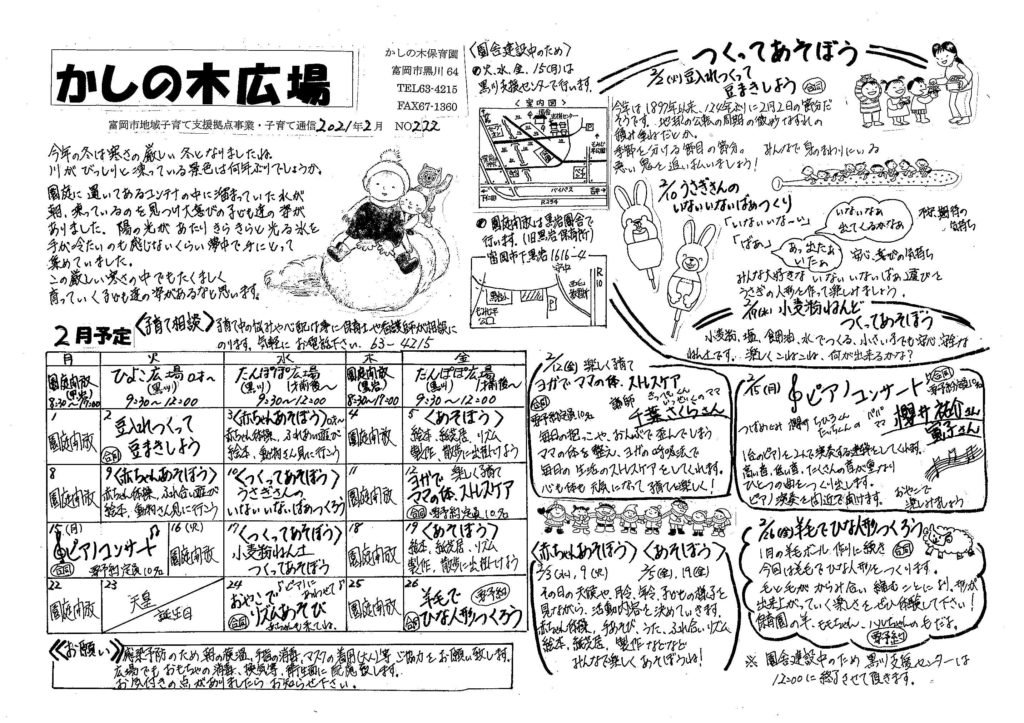 かしの木広場
かしの木保育園
富岡市黒川64
TEL63-4215
FAX67-1360
富岡市地域子育て支援拠点事業・子育て通信 2021年2月 NO222
今年の冬は寒さの厳しい冬となりましたね。
川がびっしりと凍っている景色は何年ぶりでしょうか。
園庭に置いてあるコンテナの中に溜まっていた水が
朝、凍っているのを見つけ大喜びの子ども達の姿が
ありました。陽の光があたりきらきらと光る氷を
手が冷たいのも感じないくらい夢中で手にとって
集めていました。
この厳しい寒さの中でもたくましく
育っていく子ども達の姿があるなと思います。
<園舎建設中のため>
●火、水、金、15(月)は
黒川支援センターで行います。
<案内図>
バイパス
R254
●園庭開放は黒岩園舎で
行います。(旧黒岩保育所)
富岡市下黒岩1616-4
つくってあそぼう
2/2(火)豆入れつくって
豆まきしよう
合同
今年は1897年以来、124年ぶりに2月2日の節分だ
そうです。地球の公転の周期の微妙なずれの
積み重ねだとか。
季節を分ける節目の節分。みんなで身のまわりにいる
悪い鬼を追い払いましょう!
2/10うさぎさんの
いないいないばあつくり
「いないいなーい」
「ばあ」
いないなぁ
出てくるかなぁ
あっ出たぁ
いたぁ
不安、期待の
気持ち
安心、喜びの気持ち
みんな大好きないないいないばあ遊びを
うさぎの人形を作って楽しみましょう。
2/17(水)小麦粉ねんど
つくってあそぼう
小麦粉、塩、食用油、水でつくる、小さい子でも安心、安全な
ねんどです。楽しくこねこね、何が出来るかな?
2月予定
<子育て相談> 子育て中の悩みや心配は事に保育士や看護師が相談に
のります。気軽にお電話下さい。63-4215
月 火 水 木 金
園庭開放(黒岩)8:30~17:00
ひよこ広場 0才~(黒川)9:30~12:00
たんぽぽ広場(黒川)1才前後~9:30~12:00
園庭開放(黒岩)8:30~17:00
たんぽぽ広場(黒川)1才前後~9:30~12:00
1 園庭開放
2 豆入れつくって豆まきしよう 合同
3<赤ちゃんあそぼう>0才~ 赤ちゃん体操、ふれあい遊び 絵本、動物さん見に行こう
4 園庭開放
5<あそぼう> 絵本、紙芝居、リズム 製作、散歩に出掛けよう
8 園庭開放
9<赤ちゃんあそぼう> 赤ちゃん体操、ふれ合い遊び 絵本、動物さん見に行こう
10<つくってあそぼう> うさぎさんの いないいないばあつくり
11 園庭開放
12 楽しく子育て ヨガでママの体、ストレスケア 合同 要予約定員10名
15(月)ピアノコンサート 合同 要予約定員10名
16(火)園庭開放
17<つくってあそぼう> 小麦粉ねんど つくってあそぼう
18 園庭開放
19<あそぼう> 絵本、紙芝居、リズム 製作、散歩に出掛けよう
22 園庭開放
23 天皇誕生日
24 おやこで『ピアノにあわせて』リズムあそび 合同 赤ちゃんも来てね。
25 園庭開放
26 羊毛でひな人形つくろう 要予約 合同
《お願い》
感染予防のため朝の検温、手指の消毒、マスクの着用(大人)等ご協力をお願い致します。
広場でもおもちゃの消毒、換気等、衛生面に配慮致します。
お気付きの点がありましたらお知らせ下さい。
2/12(金)楽しく子育て
ヨガでママの体、ストレスケア
合同
要予約定員10名
講師 千葉さくらさん
毎日の抱っこや、おんぶで歪んでしまう
ママの体を整え、ヨガの呼吸法で
毎日の生活のストレスケアをしてくれます。
心も体も元気になって子育てを楽しく!
2/15(月)
ピアノコンサート
合同
要予約定員10名
パパ 櫻井祐介さん
ママ 寛子さん
1台のピアノを2人で演奏する連弾をしてくれます。
高い音、低い音、たくさんの音が重なり
ひとつの曲をつくり出します。
ピアノ演奏を間近で聞けます。
おやこで
楽しみましょう
<赤ちゃんあそぼう>
2/3(水)、9(火)
<あそぼう>
2/5(金)、19(金)
その日の天候や、月令、年令、子どもの様子を
見ながら、活動内容を決めていきます。
赤ちゃん体操、手あそび、うた、ふれ合いリズム
絵本、紙芝居、製作などなど
みんなで楽しくあそぼうね!
2/26(金)羊毛でひな人形つくろう
合同
1月の羊毛ボール作りに続き
今回は羊毛でひな人形をつくります。
毛と毛がからみ合い縮むことにより、形が
出来上がっていく楽しさをぜひ体験して下さい!
保育園の羊、モモちゃん、ハルちゃんの毛だよ。
要予約
※園舎建設中のため黒川支援センターは
12:00に終了させて頂きます。